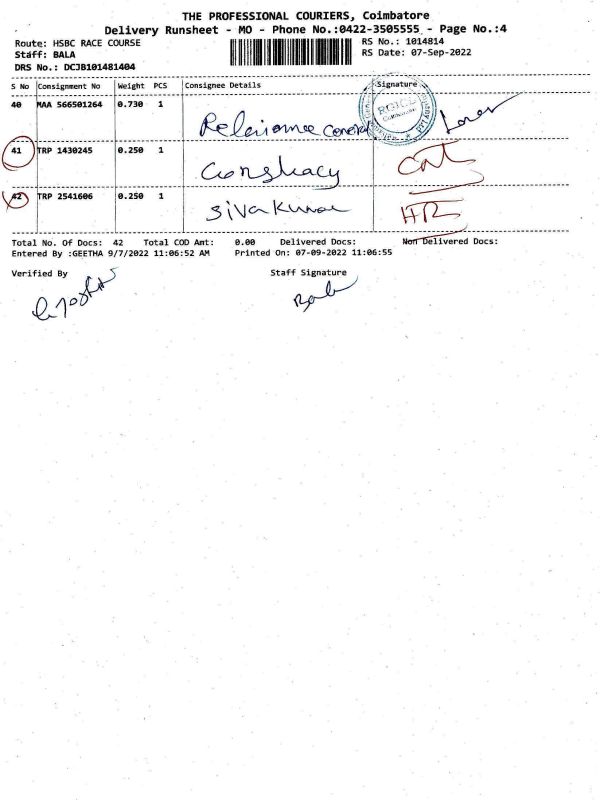 THE PROFESSIONAL COURIERS, Coimbatore
Delivery Runsheet - MO - Phone No.:0422-3505555 - Page No.:4
Route: HSBC RACE COURSE
RS No.: 1014814
Staff: BALA
RS Date: 07-Sep-2022
DRS No.: DCJB101481404
S No Consignment No Weight PCS Consignee Details Signature
40 MAA 566501264 0.730 1
RGICL
41 TRP 1430245 0.250 1
42 TRP 2541606 0.250 1 Sivakumar
Total No. Of Docs: 42 Total COD Amt: 0.00 Delivered Docs: Non Delivered Docs:
Entered By :GEETHA 9/7/2022 11:06:52 AM Printed On: 07-09-2022 11:06:55
Verified By Staff Signature
Bala